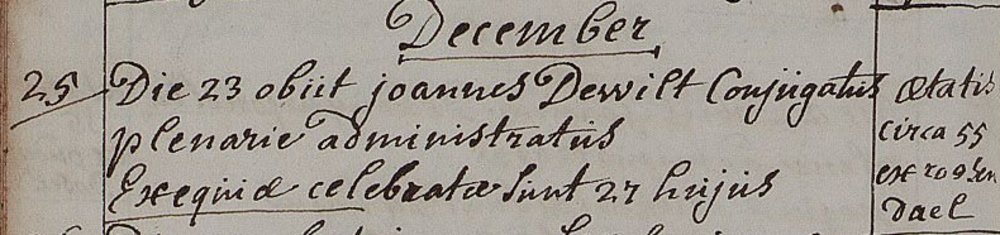 December
25 Die 23 obiit joannes Dewilt Conjugatus ætatis
plenarie administratus circa 55
Exequiæ celebratæ sunt 27 hujus ex roosen
dael